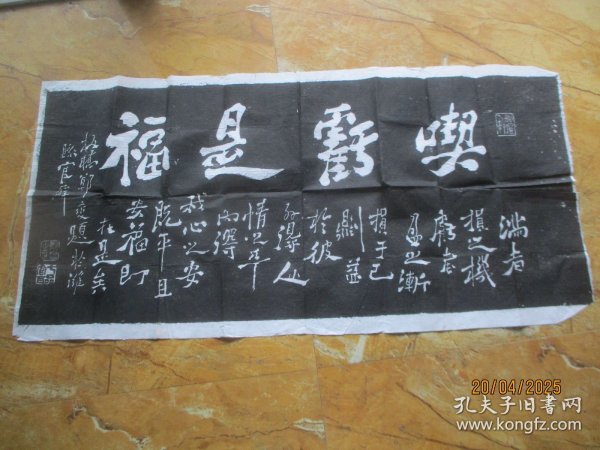 喫虧是福
満者
損之機
虧者
盈之漸
損于己
則益
於彼
外得人
情之平
内得
我心之安
既平且
安福即
在是矣
板橋鄭燮題於濰
縣官廨
20/04/2025
孔夫子旧书网
www.kongfz.com